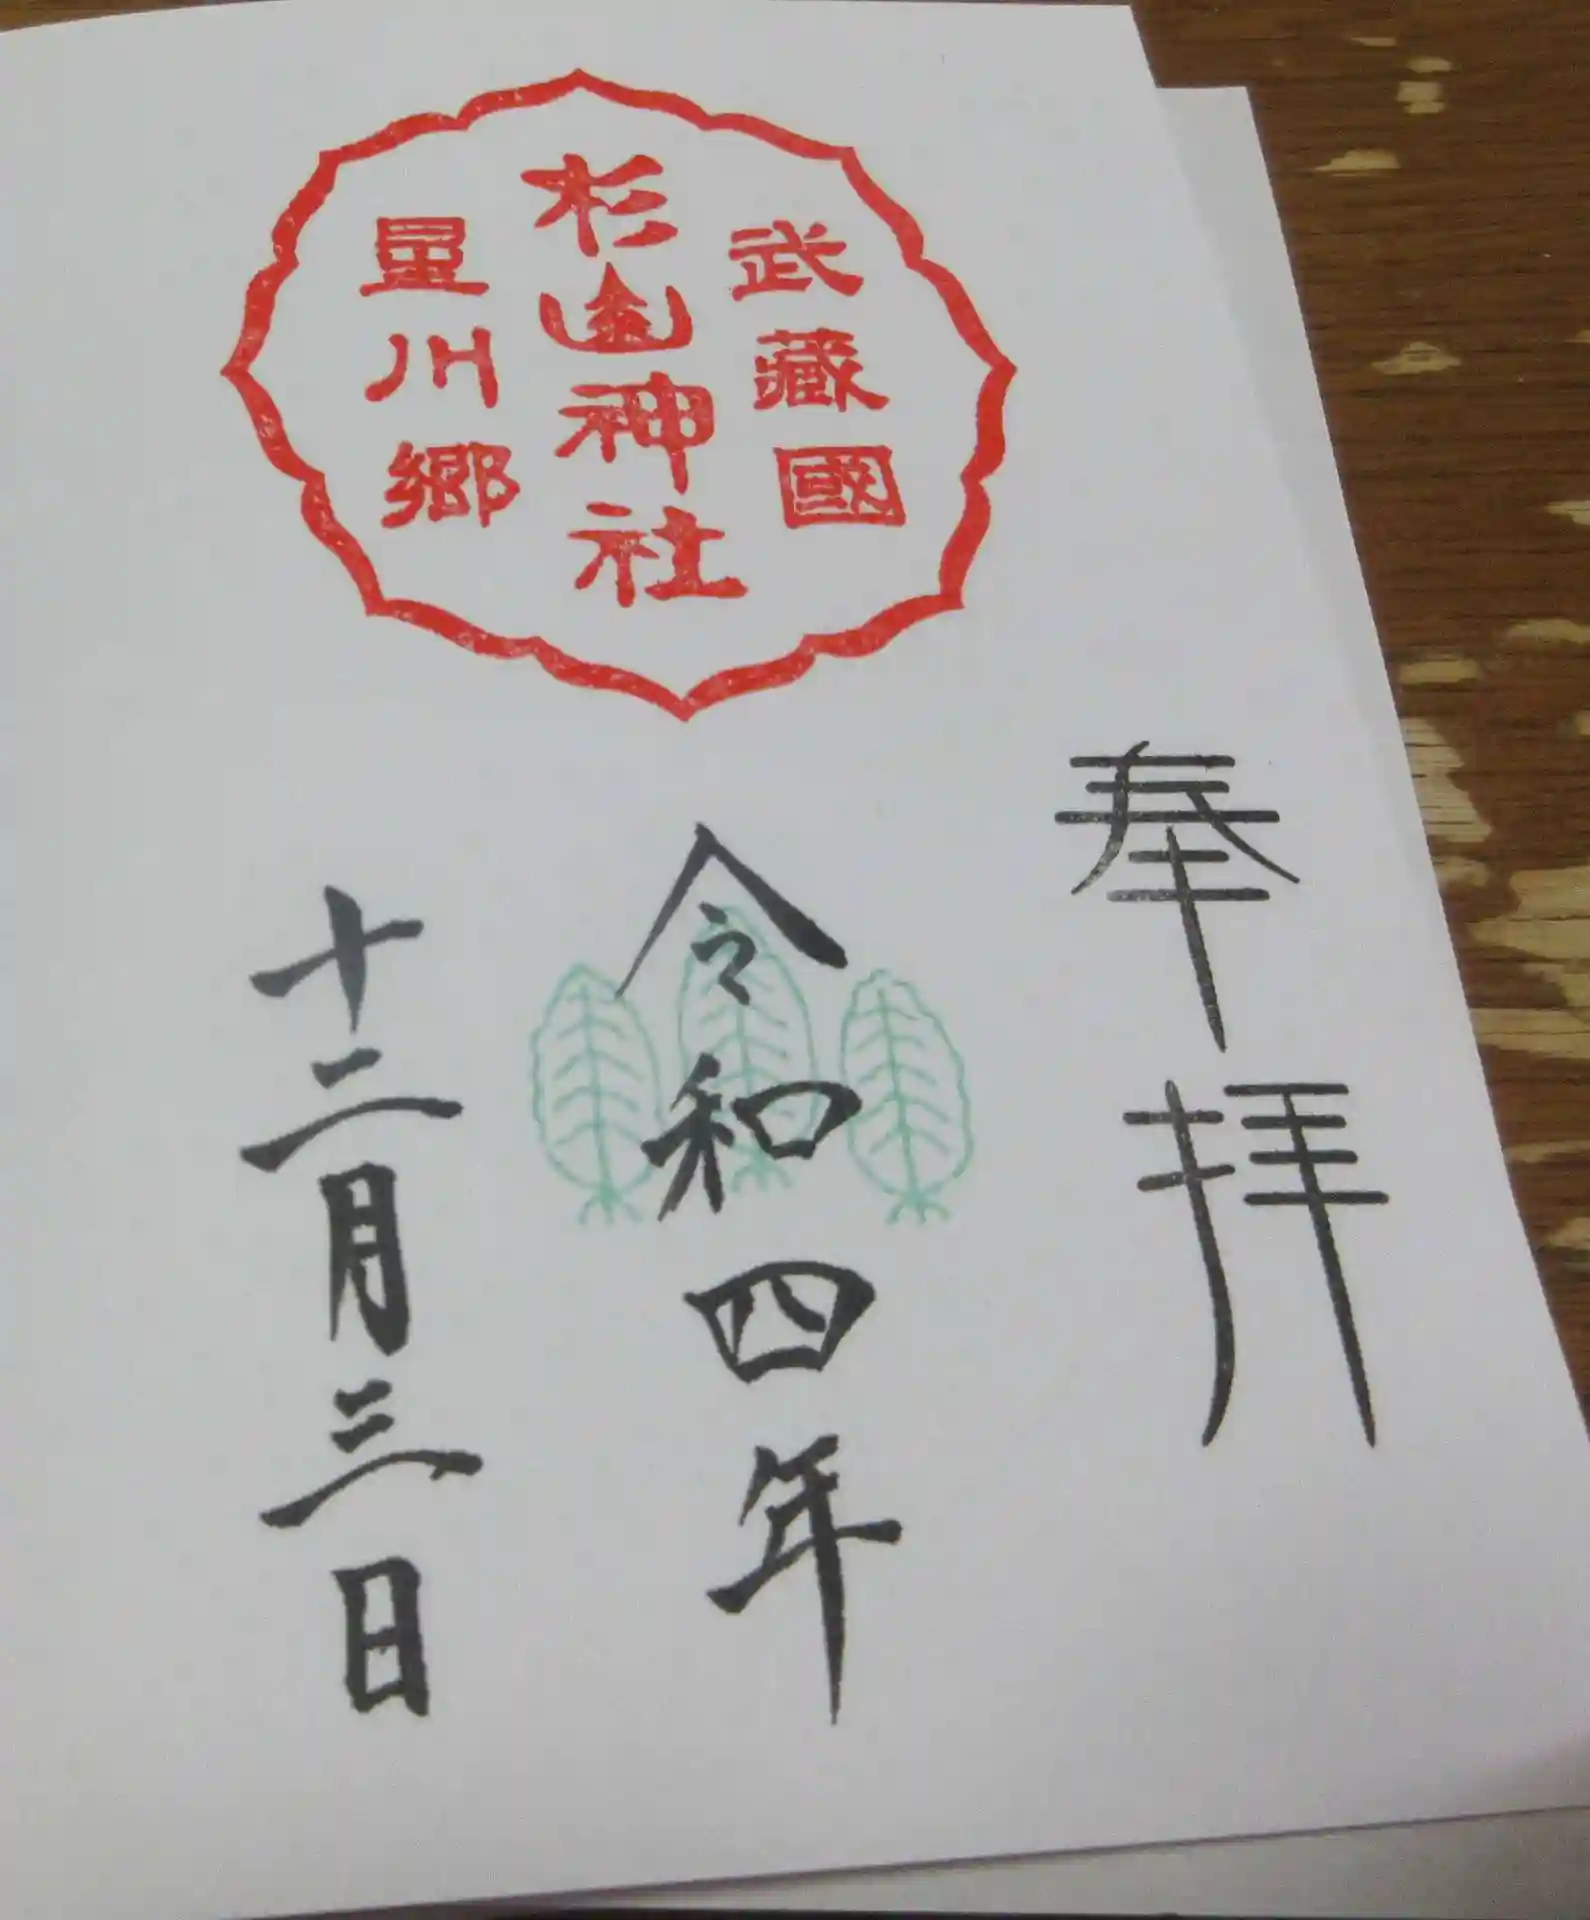 奉拝
武藏國
杉山神社
星川郷
令和四年
十二月三日